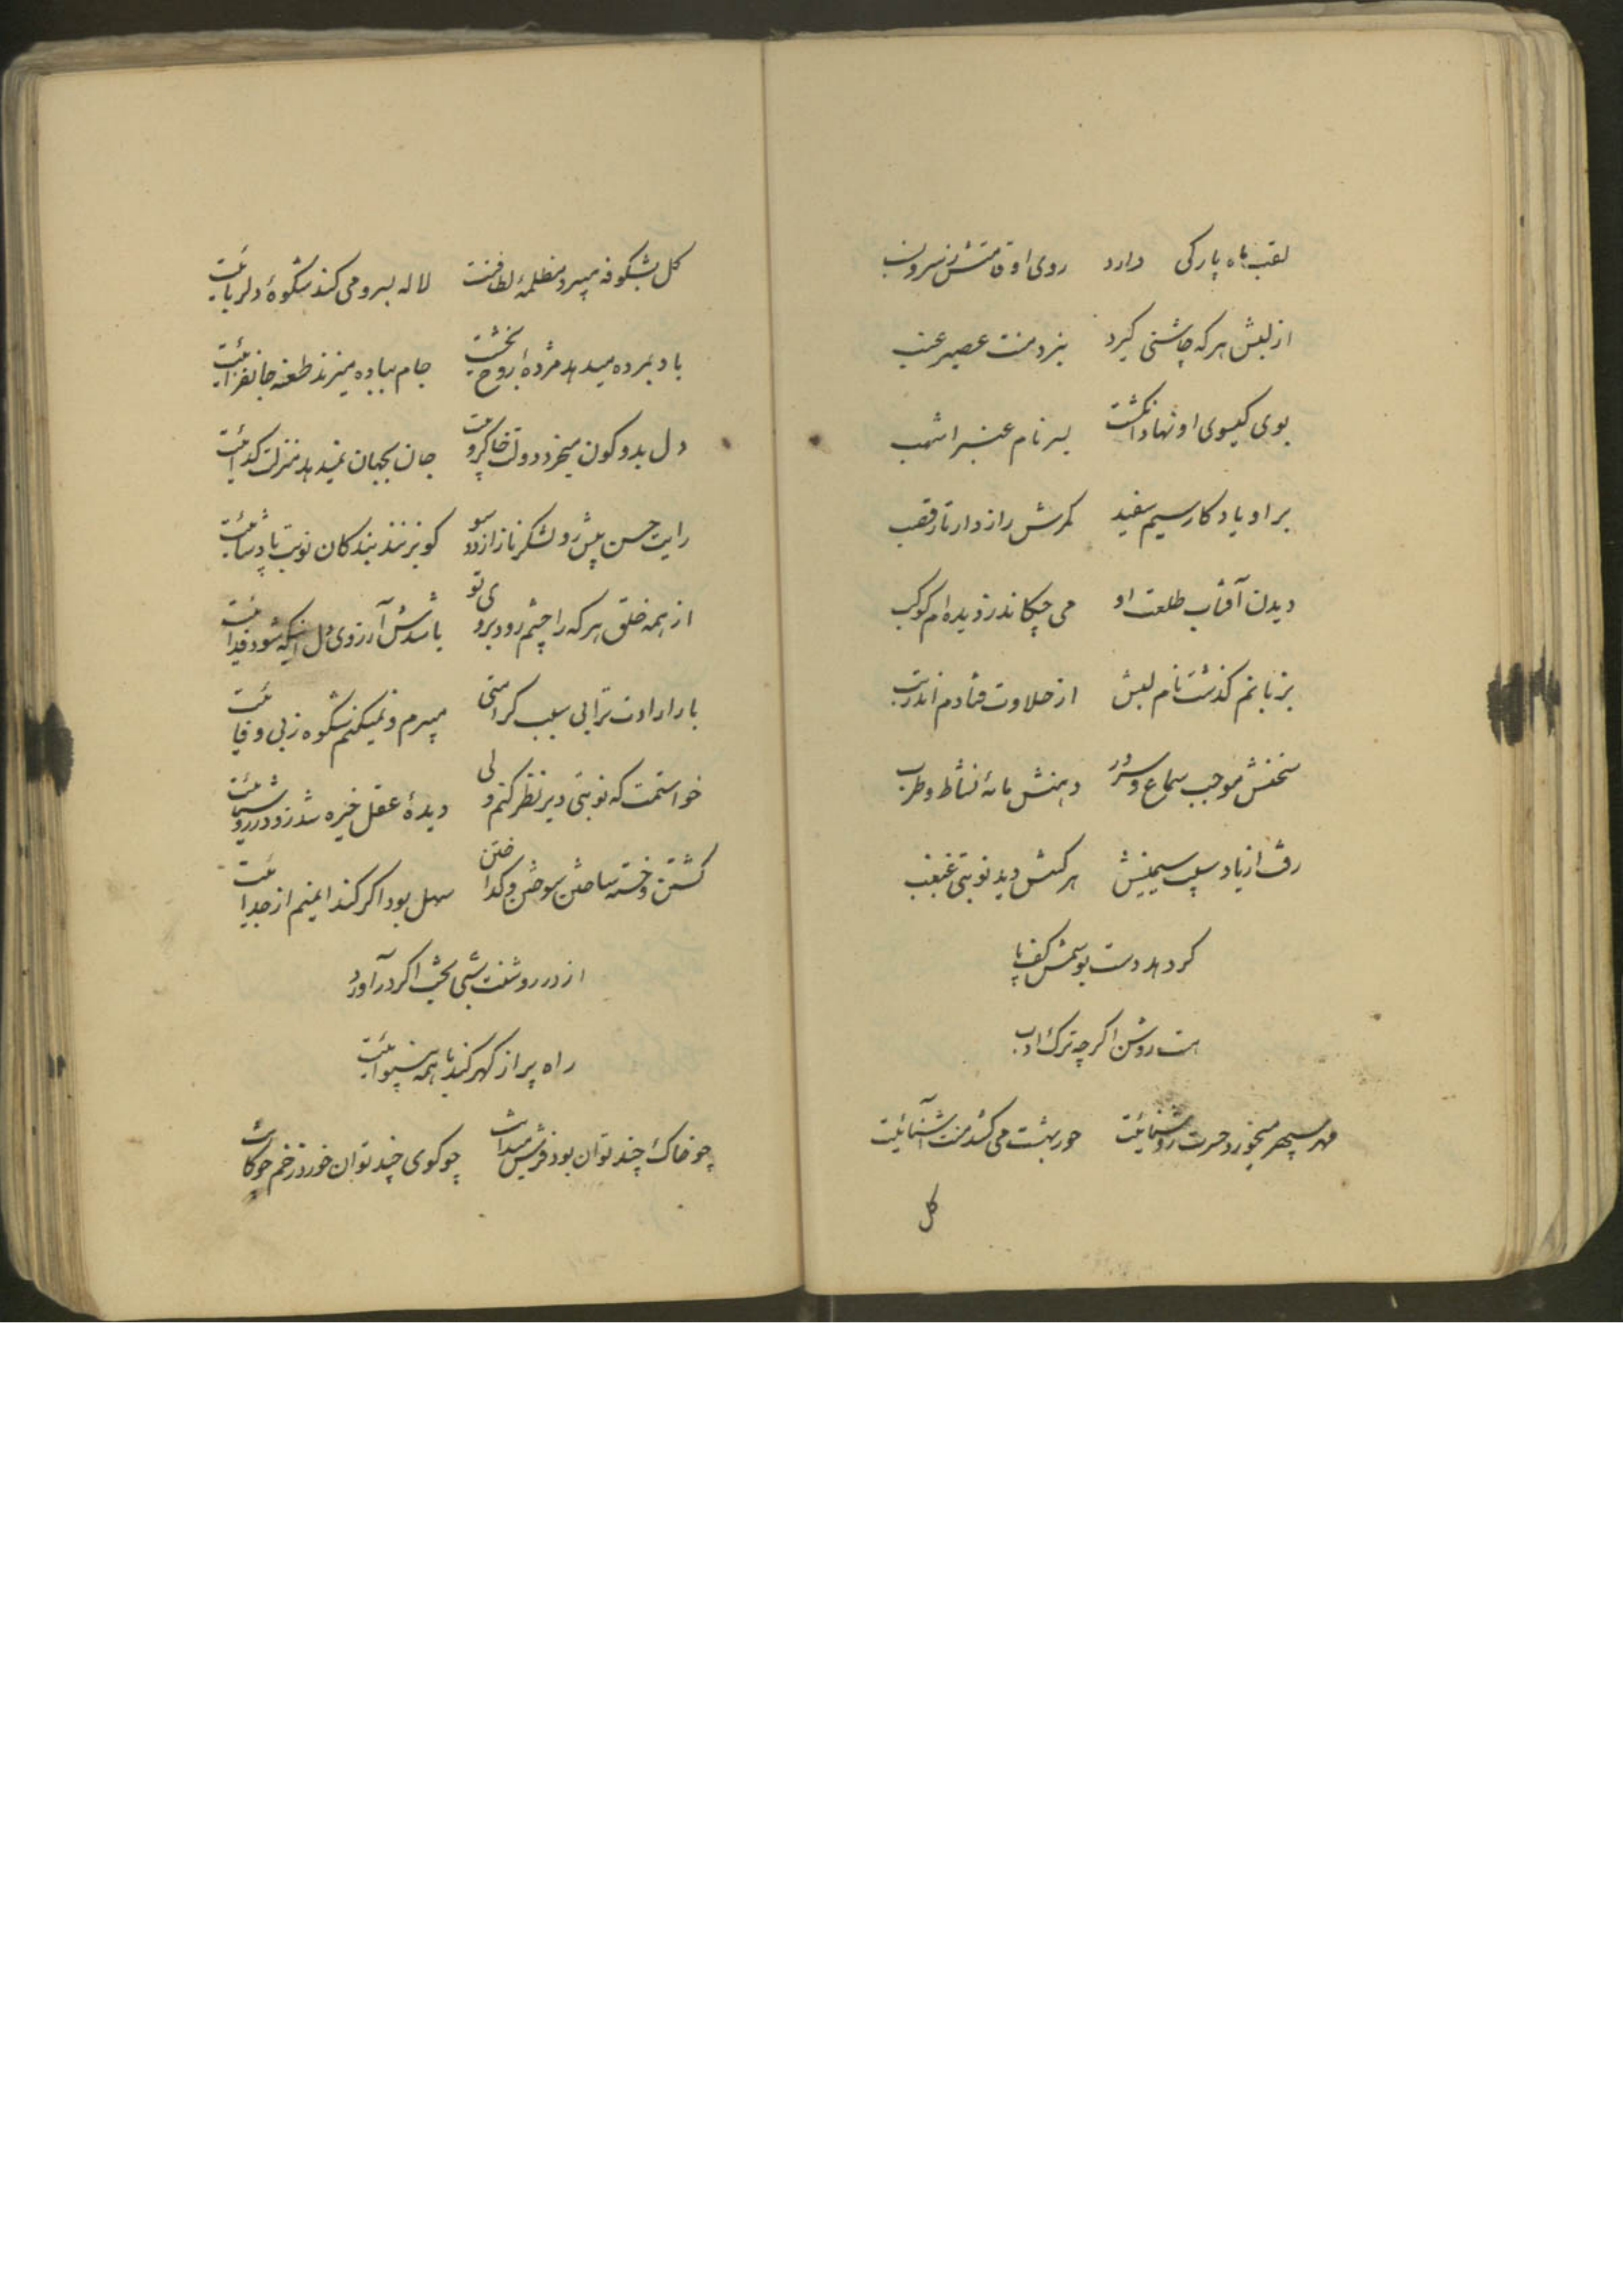 لقب ماه پارکی دارد روی او قامتش ز سرو
از لبش هر که چاشنی گیرد نبرد منت عصیر عنب
بوی گیسوی او نهاد انگشت بسر نام عنبر اشهب
بر او یادگار سیم سفید کمرش رازدار تار قصب
دیدن آفتاب طلعت او می چکاند ز دیده ام کوکب
بزبانم گذشت نام لبش از حلاوت فتادم اندر تب
سخنش موجب سماع و سرور دهنش مایهٔ نشاط و طرب
رفت از یاد سیب سیمینش هر کسش دید نوبتی غبغب
گر دهد دست بوسمش کف پا
هست روشن اگر چه ترک ادب
مهر سپهر میخورد حسرت روشنائیت حور بهشت می کشد منت آشنائیت
گل
گل بشکوفه میبرد مظلمهٔ لطافتت لاله بسرو می کند شکوهٔ دلربائیت
باد بمرده میدهد مژدهٔ روح بخشیت جام بباده میزند طعنهٔ جانفزائیت
دل بدو کون میخرد دولت خاکروبیت جان بجهان نمیدهد منزلت گدائیت
رایت حسن پیش رو لشکر ناز از دو سو کو بزنند بندکان نوبت پادشائیت
از همه خلق هر که را چشم رود بروی تو باشدش آرزوی دل اینکه شود فدائیت
بار ارادت ترا بی سبب کرامتی میبرم و نمیکنم شکوه ز بی وفائیت
خواستمت که نوبتی دیر نظر کنم ولی دیدهٔ عقل خیره شد زود ز روشنائیت
کشتن و خسته ساختن سوختن و گداختن سهل بود اگر کند ایمنم از جدائیت
از در روشنت شبی بخت اگر در آورد
راه پر از گهر کند با همه بینوائیت
چو خاک چند توان بود فرش میدانت چو گوی چند توان خورد زخم چوگانت